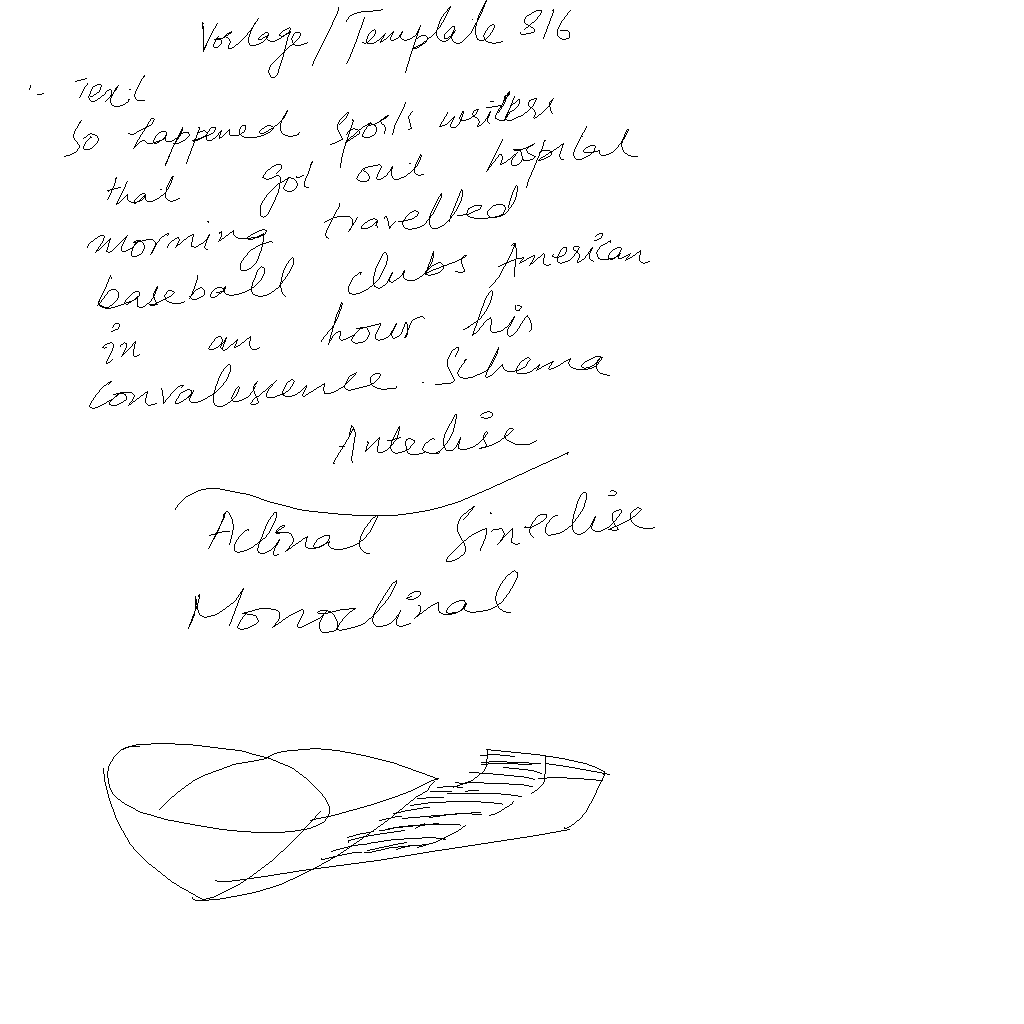 Vorlage/Template 316
:- Text
So happened sports writers
that got out hospital
morning travelled
baseball clubs American
in an hour his
convalescence. Schema
Anteclise
Aclinal Sineclise
Monoclinal